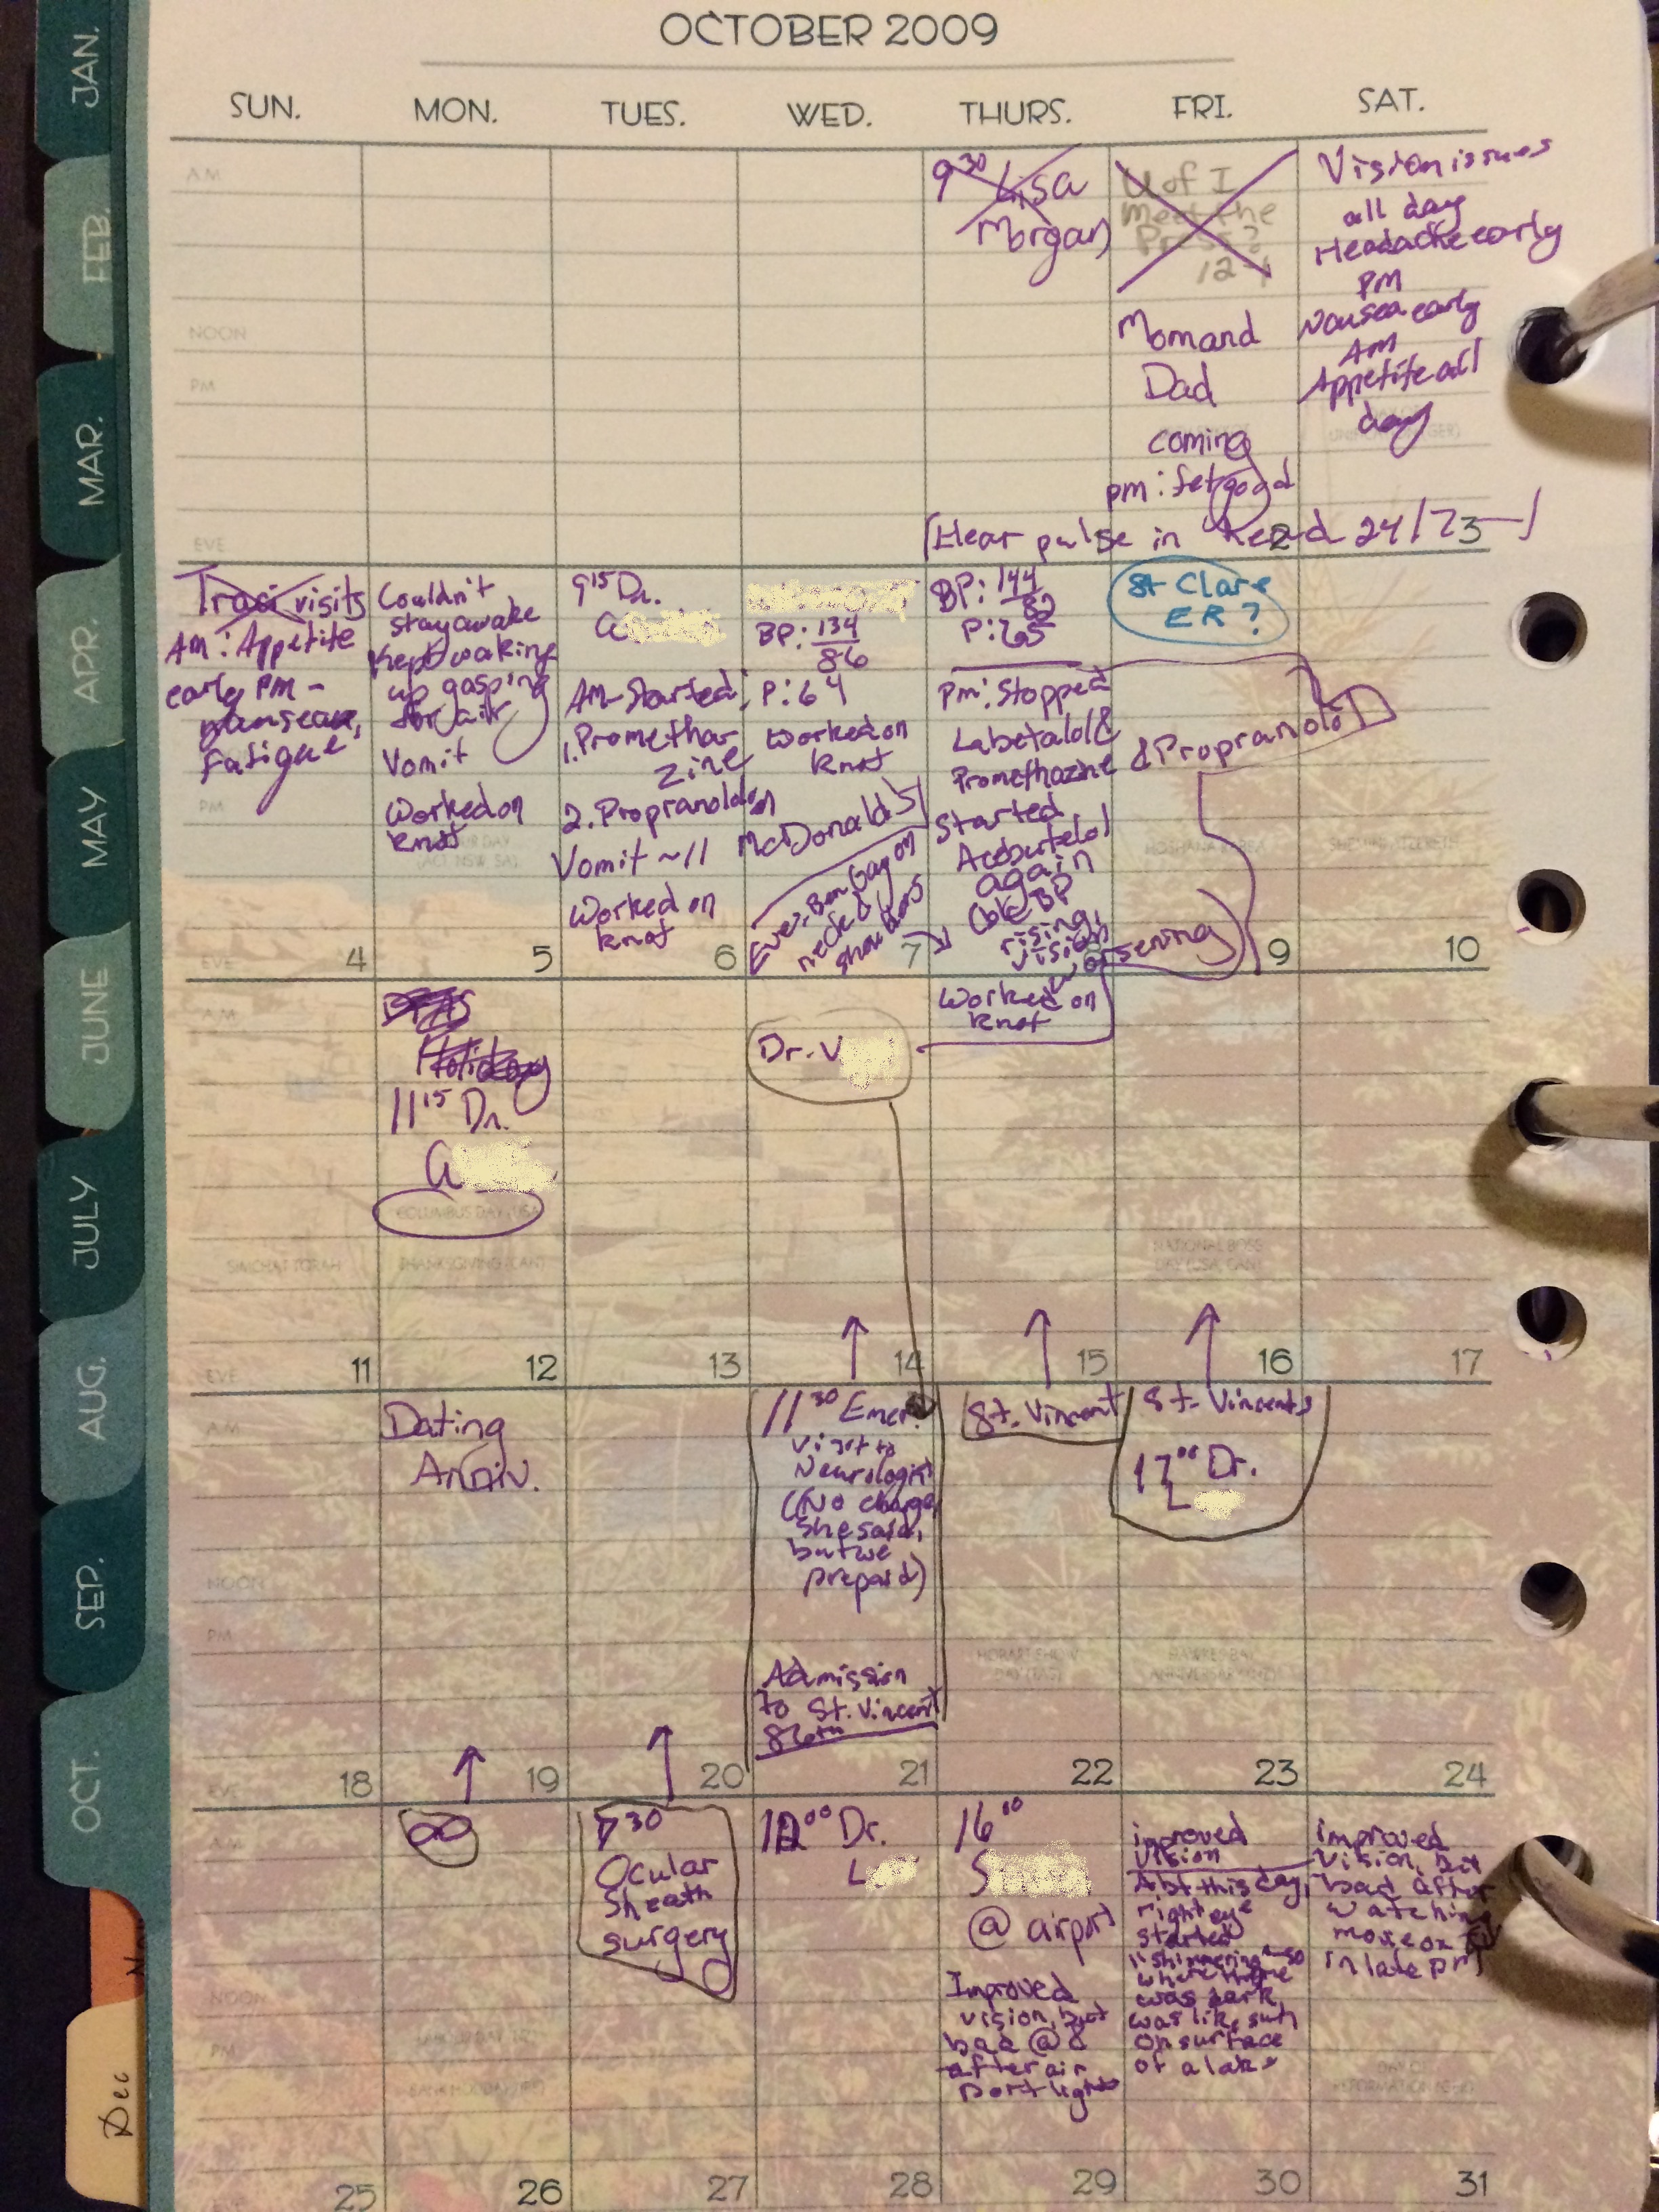 OCTOBER 2009
SUN. MON. TUES. WED. THURS. FRI. SAT.
JAN.
FEB.
MAR.
APR.
MAY
JUNE
JULY
AUG.
SEP.
OCT.
Dec
AM
NOON
PM
EVE
9 30 Lisa
Morgan
U of I
Meet the
Press?
12-1
Mom and
Dad
coming
pm: felt good
Vision issues
all day
Headache early
PM
Nausea early
AM
Appetite all
day
[Hear pulse in head 24/7]
2
3
Traci visits
AM: Appetite
early PM -
nausea,
fatigue
PM
EVE
4
Couldn't
stay awake
Kept waking
up gasping
for air
Vomit
Worked on
knot
5
9 15 Dr.
AM-Started:
1. Promethazine
2. Propranolol
Vomit ~11
Worked on
knot
6
BP: 134
86
P: 64
Worked on
knot
McDonald's
Eve: Ben Gay on
neck &
shoulders
7
BP: 144
82
P: 65
PM: Stopped
Labetalol &
Promethazine
& Propranolol
Started
again
BP
rising,
vision
worsening
Worked on
knot
St Clare
ER?
9
10
AM
Holiday
11 15 Dr.
COLUMBUS DAY (USA)
SIMCHAT TORAH
THANKSGIVING (CAN)
Dr. V
NATIONAL BOSS
DAY (USA, CAN)
EVE
11
12
13
14
15
16
17
AM
NOON
PM
EVE
Dating
Anniv.
11 30 Emer.
visit to
Neurologist
(No charge
she said,
but we
prepaid)
Admission
to St. Vincent
86th
St. Vincent
St. Vincents
Dr.
L
HOBART SHOW
DAY (TAS)
HAWKES BAY
18
19
20
21
22
23
24
AM
NOON
PM
EVE
∞
7 30
Ocular
Sheath
surgery
00 Dr.
L
16 00
S
@ airport
Improved
vision, but
bad @ 8
after air
port lights
improved
vision
Abt this day,
right eye
started
"shimmering" so
where there
was dark
was like sun
on surface
of a lake
improved
vision, but
bad after
watching
movie on TV
in late PM
25
26
27
28
29
30
31